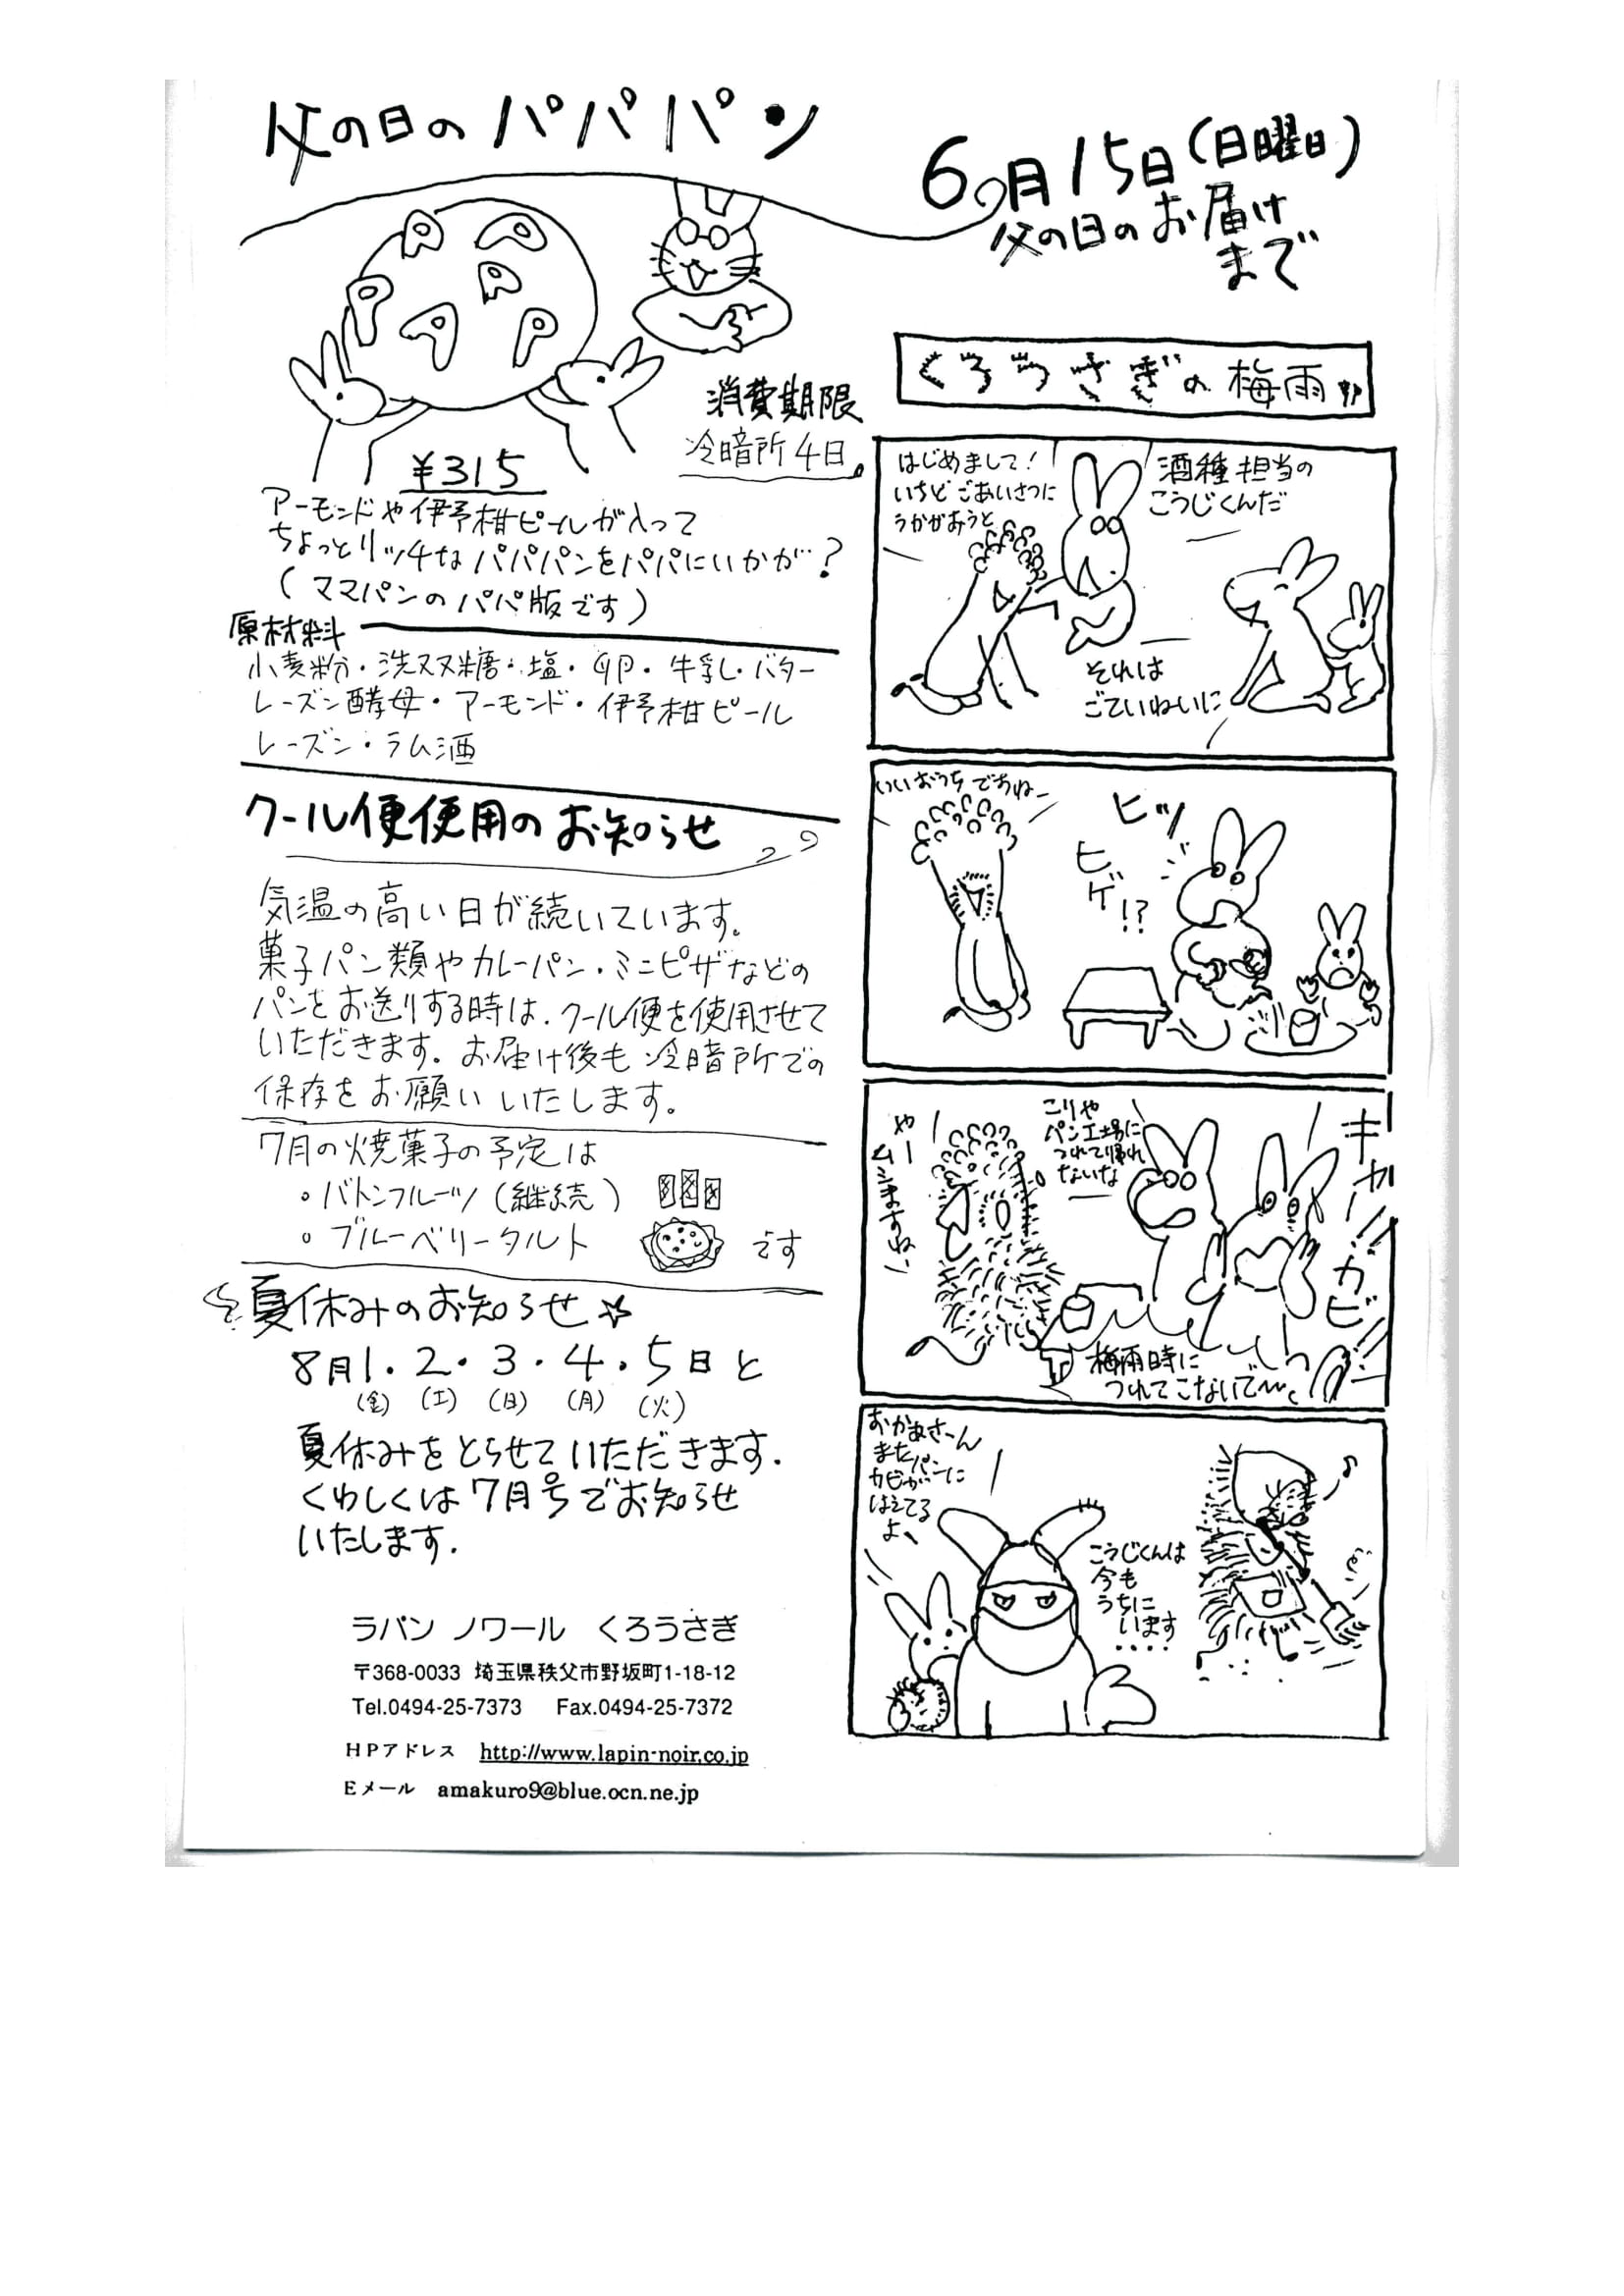 父の日のパパパン
6月15日(日曜日)
父の日のお届け
まで
パ
パ
パ
パ
パ
パ
消費期限
冷暗所4日
¥315
アーモンドや伊予柑ピールが入って
ちょっとリッチなパパパンをパパにいかが?
(ママパンのパパ版です)
原材料
小麦粉・洗双糖・塩・卵・牛乳・バター
レーズン酵母・アーモンド・伊予柑ピール
レーズン・ラム酒
クール便使用のお知らせ
気温の高い日が続いています。
菓子パン類やカレーパン・ミニピザなどの
パンをお送りする時は、クール便を使用させて
いただきます。お届け後も冷暗所での
保存をお願いいたします。
7月の焼菓子の予定は
。バトンフルーツ(継続)
。ブルーベリータルト
です
夏休みのお知らせ☆
8月1・2・3・4・5日と
(金) (土) (日) (月) (火)
夏休みをとらせていただきます.
くわしくは7月号でお知らせ
いたします.
ラパン ノワール くろうさぎ
〒368-0033 埼玉県秩父市野坂町1-18-12
Tel.0494-25-7373 Fax.0494-25-7372
HPアドレス http://www.lapin-noir.co.jp
Eメール amakuro9@blue.ocn.ne.jp
くろうさぎの梅雨
はじめまして!
いちどごあいさつに
うかがおうと
酒種担当の
こうじくんだ
それは
ごていねいに
いいおうちですねー
ヒッ
ヒゲ!?
やー
ムシますね
こりゃ
パン工場に
つれて帰れ
ないな
キャー!!カビ!!
梅雨時に
つれてこないで〜
おかあさーん
またパンに
カビが
はえてる
よ
こうじくんは
今も
うちに
います
‥‥